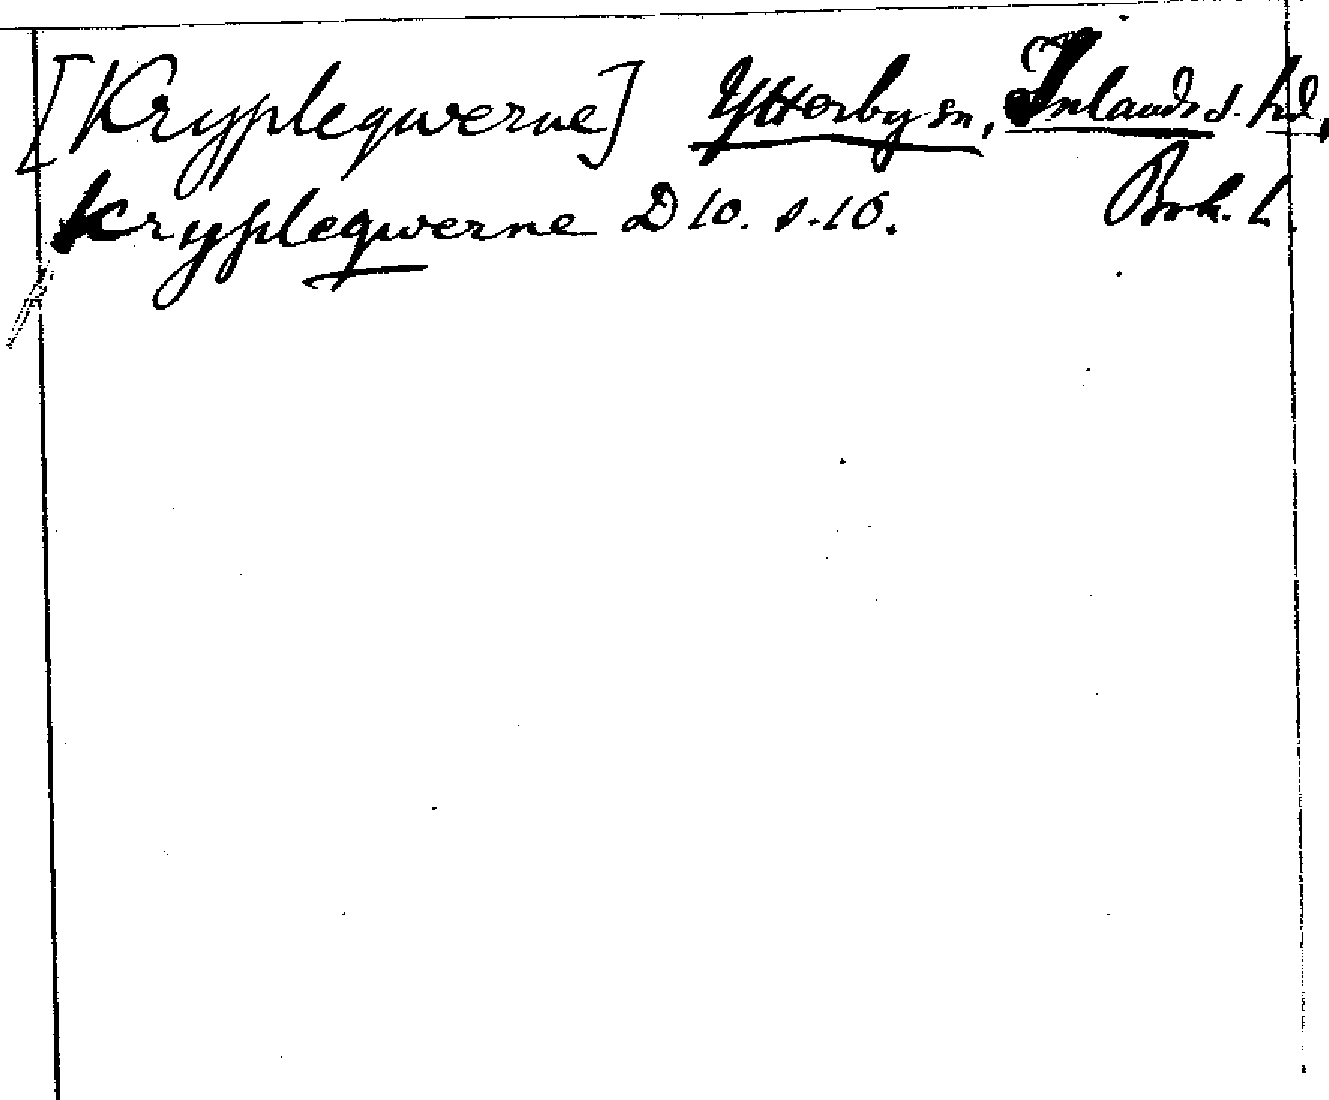 [Kryplequerne] Ytterby sn, Inlands s. hd,
Kryplequerne D 10. s. 10. Boh. l.